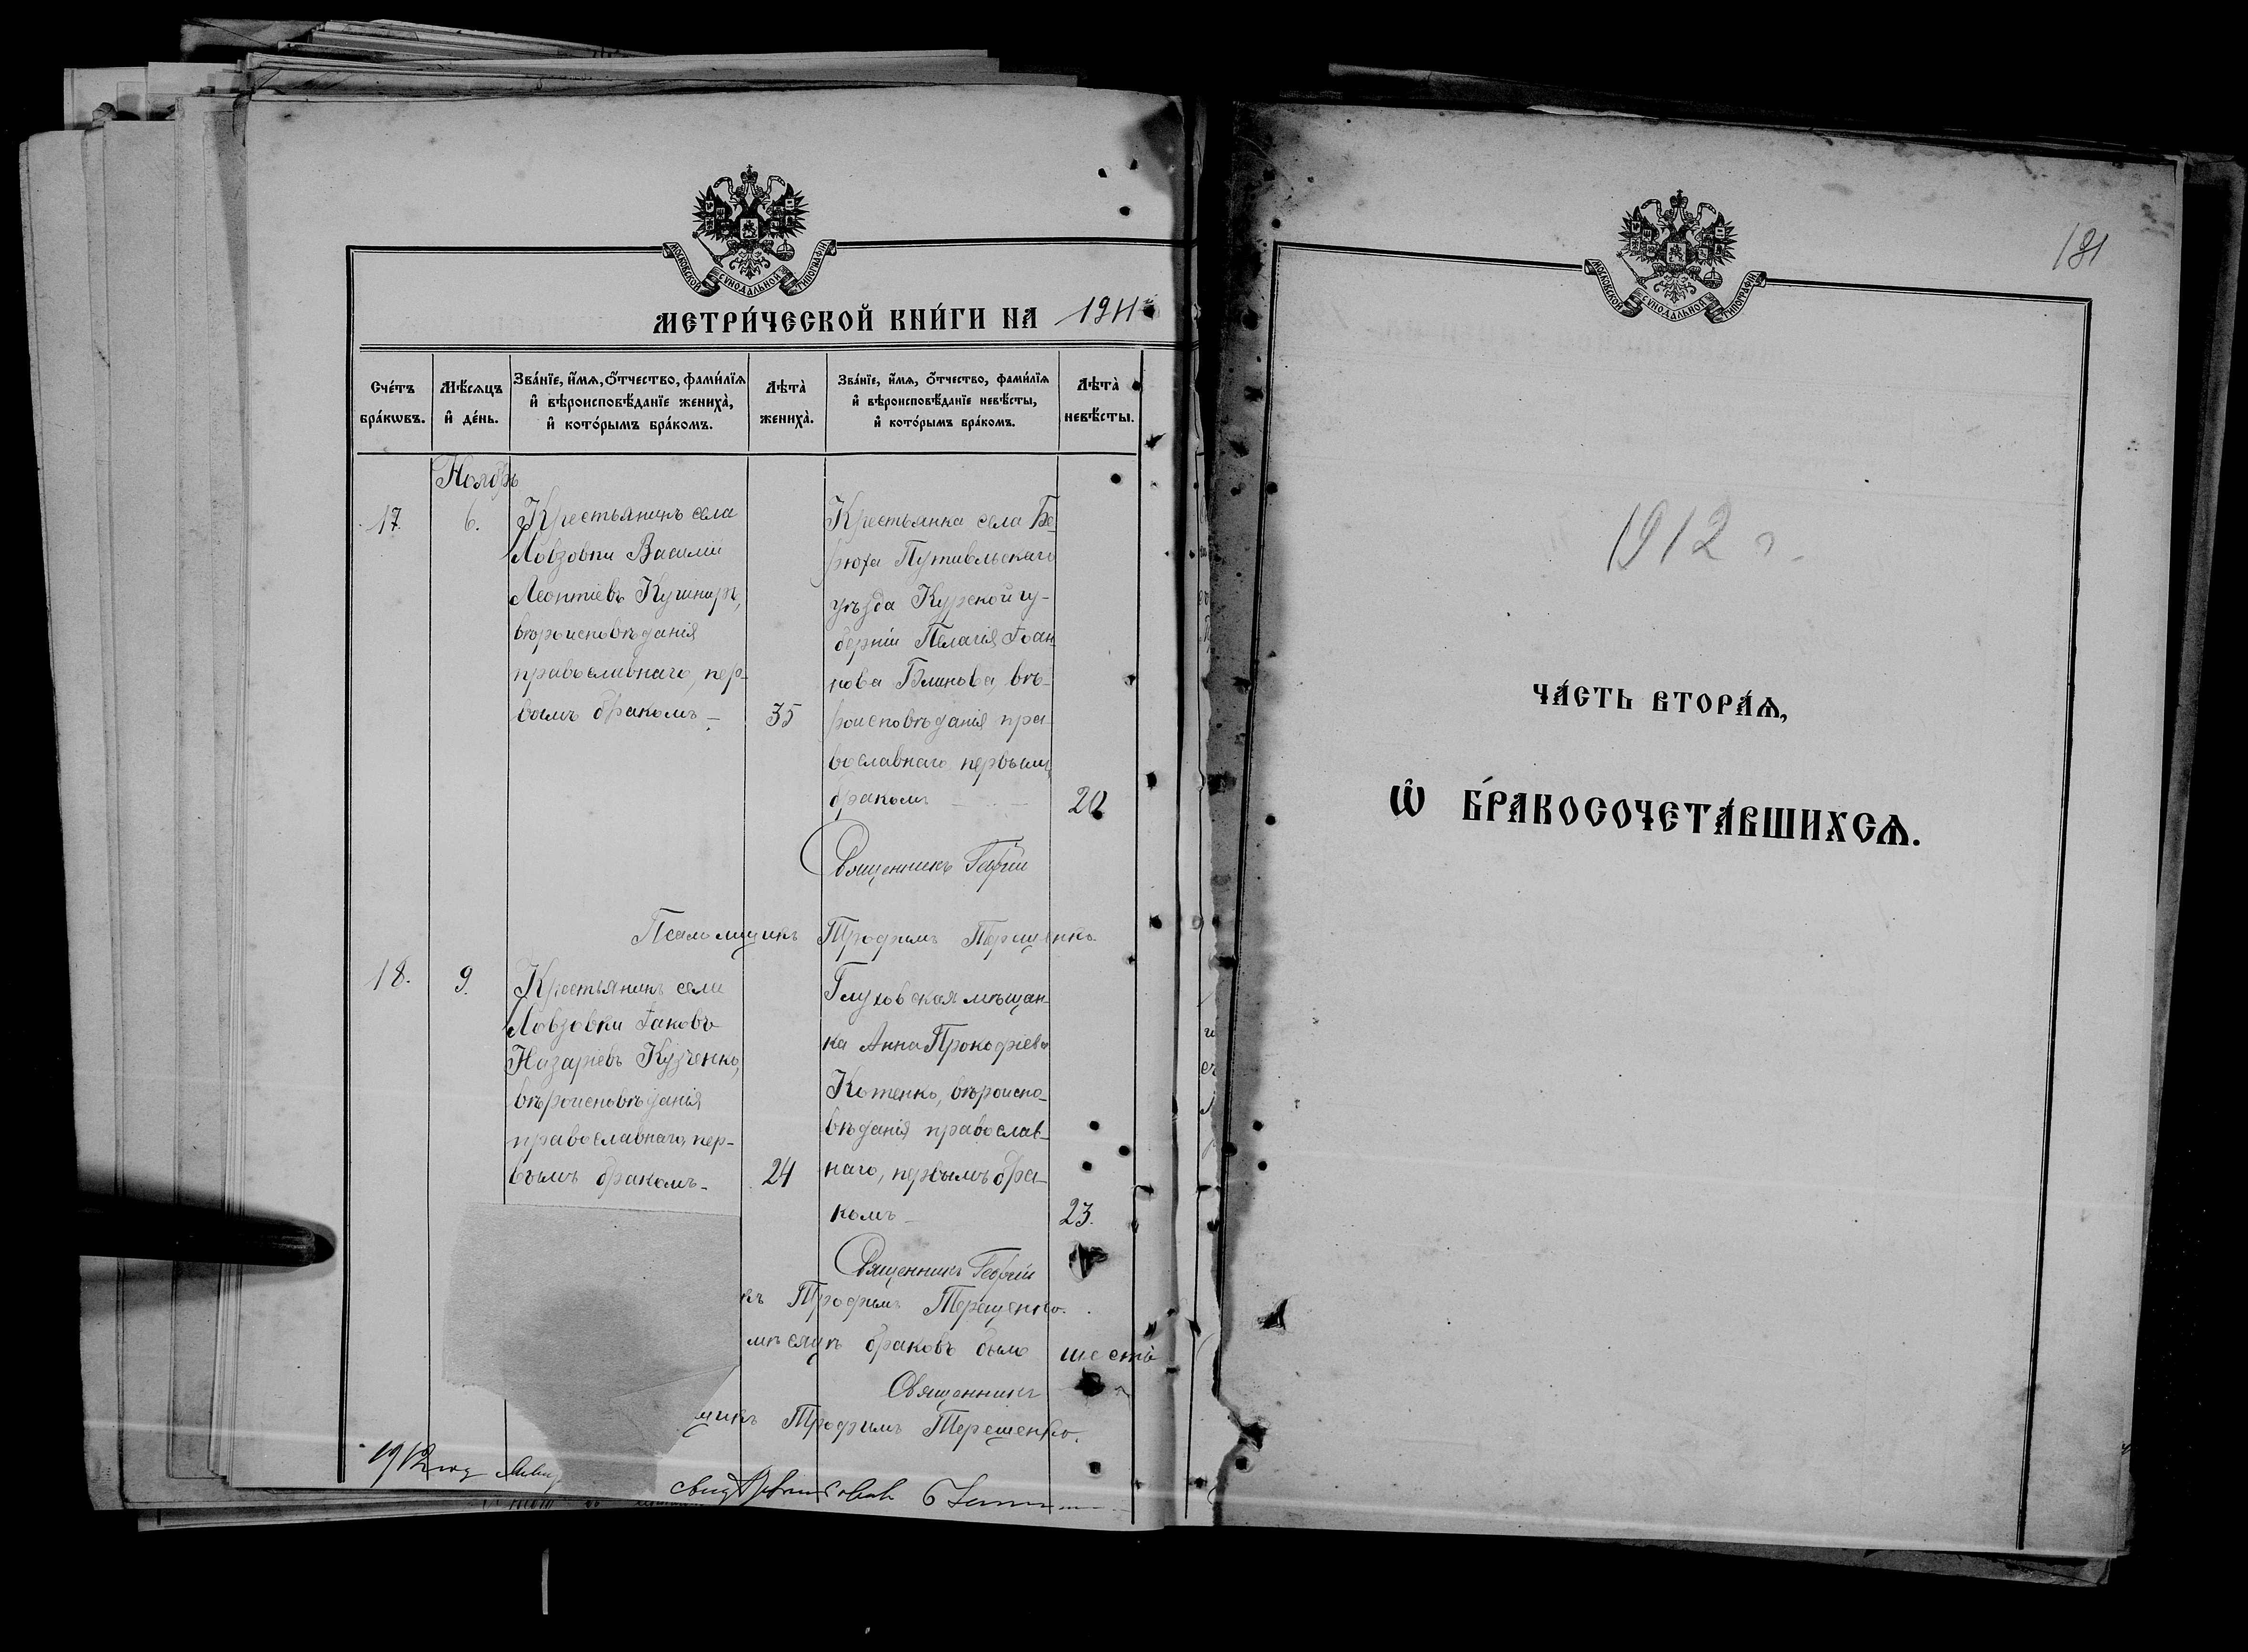 МОСКОВСКОЙ СѴНОДАЛЬНОЙ ТИПОГРАФІИ
МЕТРИ́ЧЕСКОЙ КНИ́ГИ НА 1911
Счéтъ бра́кѡвъ.
Мѣ́сяцъ и҆ де́нь.
Зва́нїе, и҆́мѧ, ѻ҆́тчество, фамилїѧ
и҆ вѣроисповѣ́данїе жениха̀,
и҆ кото́рымъ бра́комъ.
Лѣта̀ жениха̀.
Зва́нїе, и҆́мѧ, ѻ҆́тчество, фамилїѧ
и҆ вѣроисповѣ́данїе невѣ́сты,
и҆ кото́рымъ бра́комъ.
Лѣта̀ невѣ́сты.
Ноябрь
17.
6.
Крестьянинъ села
Ловзовки Василій
Леонтіевъ Кушниръ,
вѣроисповѣданія
православнаго, пер-
вымъ бракомъ –
35
Крестьянка села Бе-
рюха Путивльскаго
уѣзда Курской гу-
берніи Пелагія Іоан-
нова Блинова, вѣ-
роисповѣданія пра-
вославнаго первымъ
бракомъ
20
Священникъ Георгій
Псаломщикъ Трофимъ Терещенко.
18.
9.
Крестьянинъ села
Ловзовки Іаковъ
Назаріевъ Кузченко,
вѣроисповѣданія
православнаго, пер-
вымъ бракомъ –
24
Глуховская мѣщан-
ка Анна Прокофіева
Котенко, вѣроиспо-
вѣданія православ-
наго, первымъ бра-
комъ –
23.
Священникъ Георгій
къ Трофимъ Терещенко.
мѣсяцѣ браковъ было шесть
Священникъ
щикъ Трофимъ Терещенко.
1912 год
МОСКОВСКОЙ СѴНОДАЛЬНОЙ ТИПОГРАФІИ
191
1912 г.
ЧА́СТЬ ВТОРА́Ѧ,
Ѽ БРАКОСОЧЕТА́ВШИХСѦ.